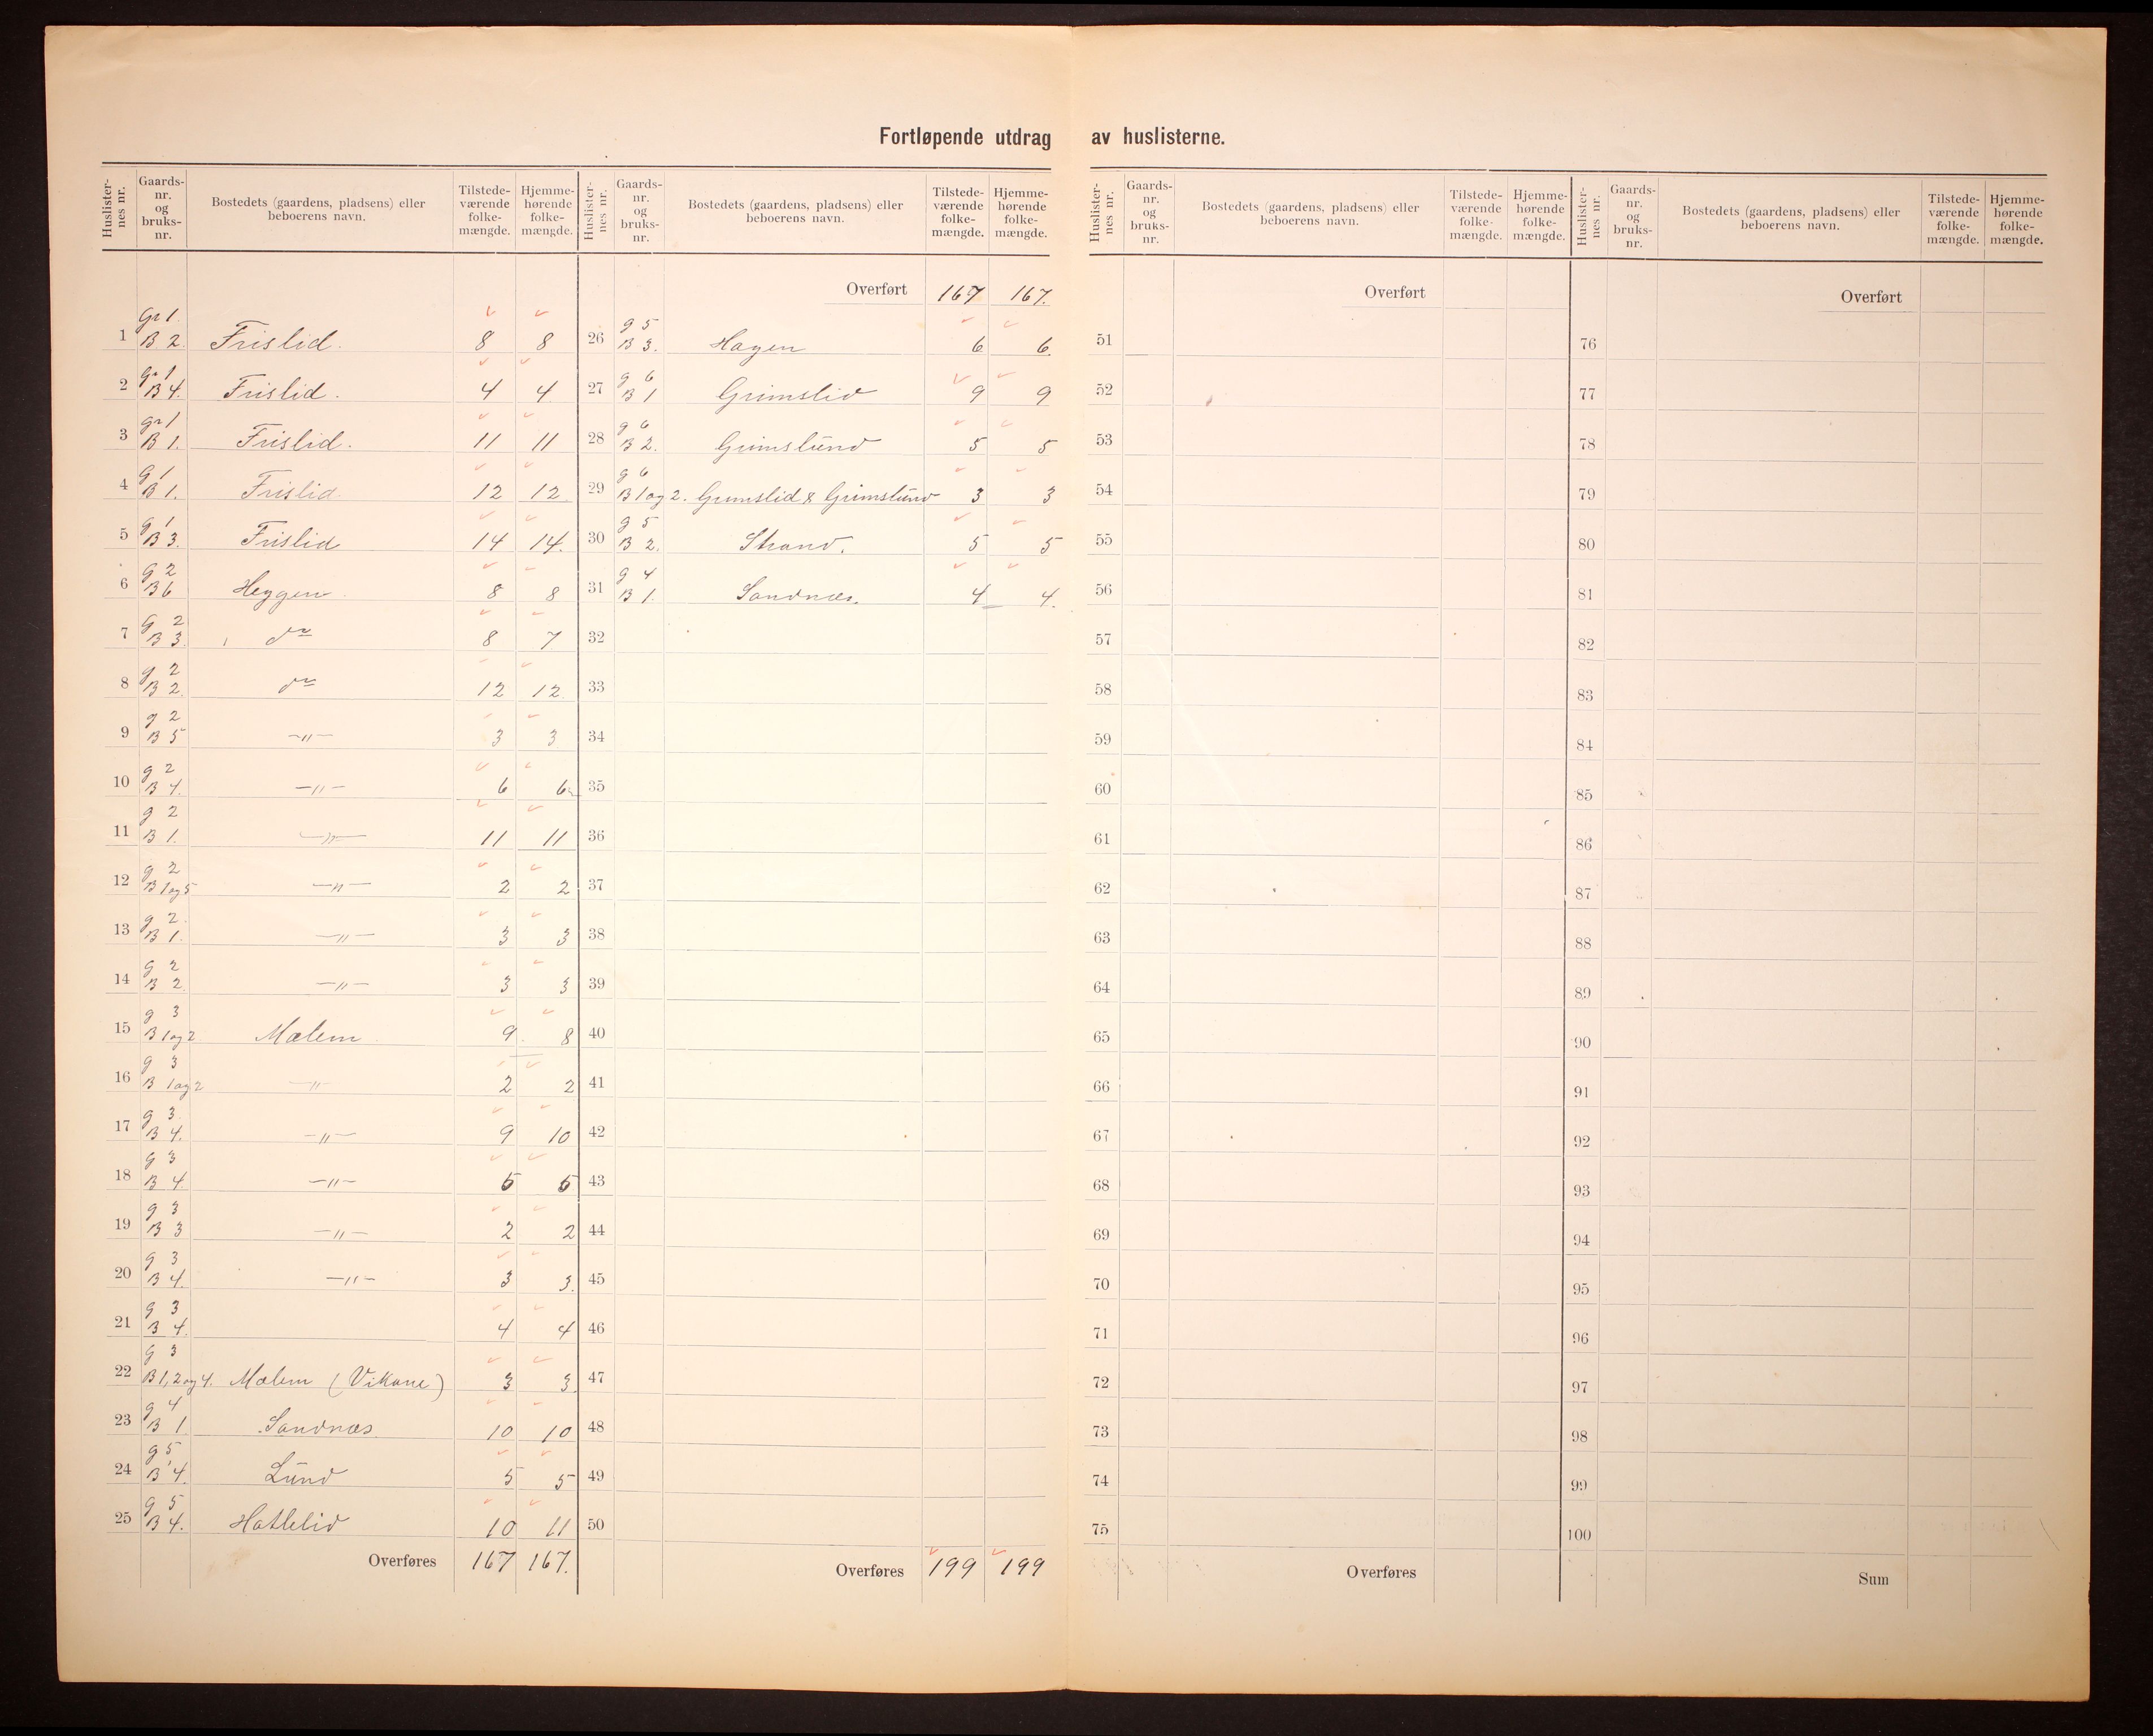 Fortløpende utdrag av huslisterne.
Huslisternes nr. Gaards-nr. og bruks-nr. Bostedets (gaardens, pladsens) eller beboerens navn. Tilstede-værende folke-mængde. Hjemme-hørende folke-mængde.
1 Gr 1. B 2. Frislid. 8 8
2 gr 1 B 4. Frislid. 4 4
3 gr 1 B 1. Frislid. 11 11
4 g 1 B 1. Frislid 12 12
5 g 1 B 3. Frislid 14 14.
6 g 2 B 6 Heggen. 8 8
7 g 2 B 3. do 8 7
8 g 2 B 2. do 12 12
9 g 2 B 5 —"— 3 3
10 g 2 B 4. —"— 6 6
11 g 2 B 1. —"— 11 11
12 g 2 B 1 og 5 —"— 2 2
13 g 2. B 1. —"— 3 3
14 g 2 B 2 —"— 3 3
15 g 3 B 1 og 2 Mælem 9 8
16 g 3 B 1 og 2 —"— 2 2
17 g 3 B 4. —"— 9 10
18 g 3 B 4 —"— 5 5
19 g 3 B 3 —"— 2 2
20 g 3 B 4. —"— 3 3.
21 g 3 B 4. 4 4
22 g 3 B 1, 2 og 4. Mælem (Vikane) 3 3
23 g 4 B 1 Sandnæs 10 10
24 g 5 B 4. Lund 5 5
25 g 5 B 4. Hatlelid 10 11
Overføres 167 167.
Huslisternes nr. Gaards-nr. og bruks-nr. Bostedets (gaardens, pladsens) eller beboerens navn. Tilstede-værende folke-mængde. Hjemme-hørende folke-mængde.
Overført 167 167.
26 g 5 B 3. Hagen 6 6.
27 g 6 B 1 Grimslid 9 9
28 g 6 B 2. Grimslund 5 5
29 g 6 B 1 og 2. Grimslid & Grimslund 3 3
30 g 5 B 2. Strand. 5 5
31 g 4 B 1. Sandnæs. 4 4.
32
33
34
35
36
37
38
39
40
41
42
43
44
45
46
47
48
49
50
Overføres 199 199
Huslisternes nr. Gaards-nr. og bruks-nr. Bostedets (gaardens, pladsens) eller beboerens navn. Tilstede-værende folke-mængde. Hjemme-hørende folke-mængde.
Overført
51
52
53
54
55
56
57
58
59
60
61
62
63
64
65
66
67
68
69
70
71
72
73
74
75
Overføres
Huslisternes nr. Gaards-nr. og bruks-nr. Bostedets (gaardens, pladsens) eller beboerens navn. Tilstede-værende folke-mængde. Hjemme-hørende folke-mængde.
Overført
76
77
78
79
80
81
82
83
84
85
86
87
88
89
90
91
92
93
94
95
96
97
98
99
100
Sum